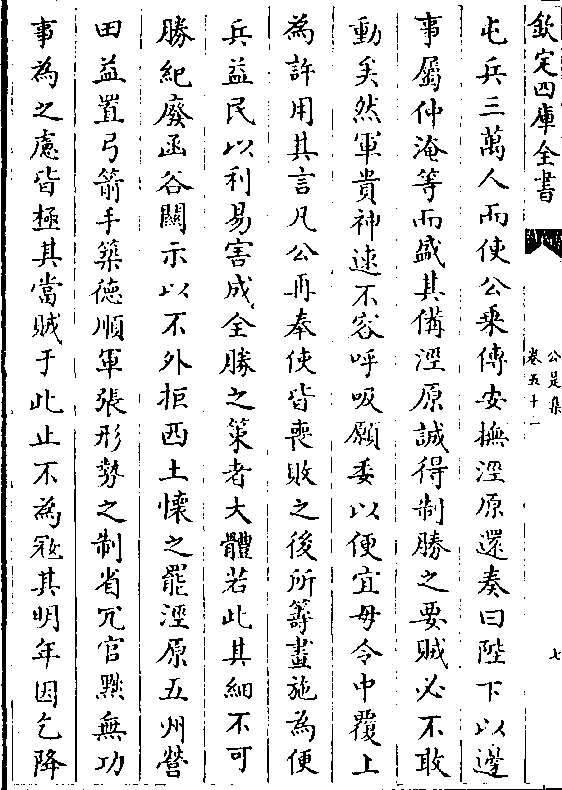 欽定四庫全書
公是集
卷五十一
七
屯兵三萬人而使公乗傳安撫涇原還奏曰陛下以邊
事屬仲淹等而盛其備涇原誠得制勝之要賊必不敢
動矣然軍貴神速不容呼吸願委以便宜毋令中覆上
為許用其言凡公再奉使皆喪敗之後所籌畫施為便
兵益民以利易害成全勝之策者大體若此其細不可
勝紀廢函谷關示以不外拒西土懐之罷涇原五州營
田益置弓箭手築徳順軍張形勢之制省冗官黜無功
事為之慮皆極其當賊于此止不為寇其明年因乞降